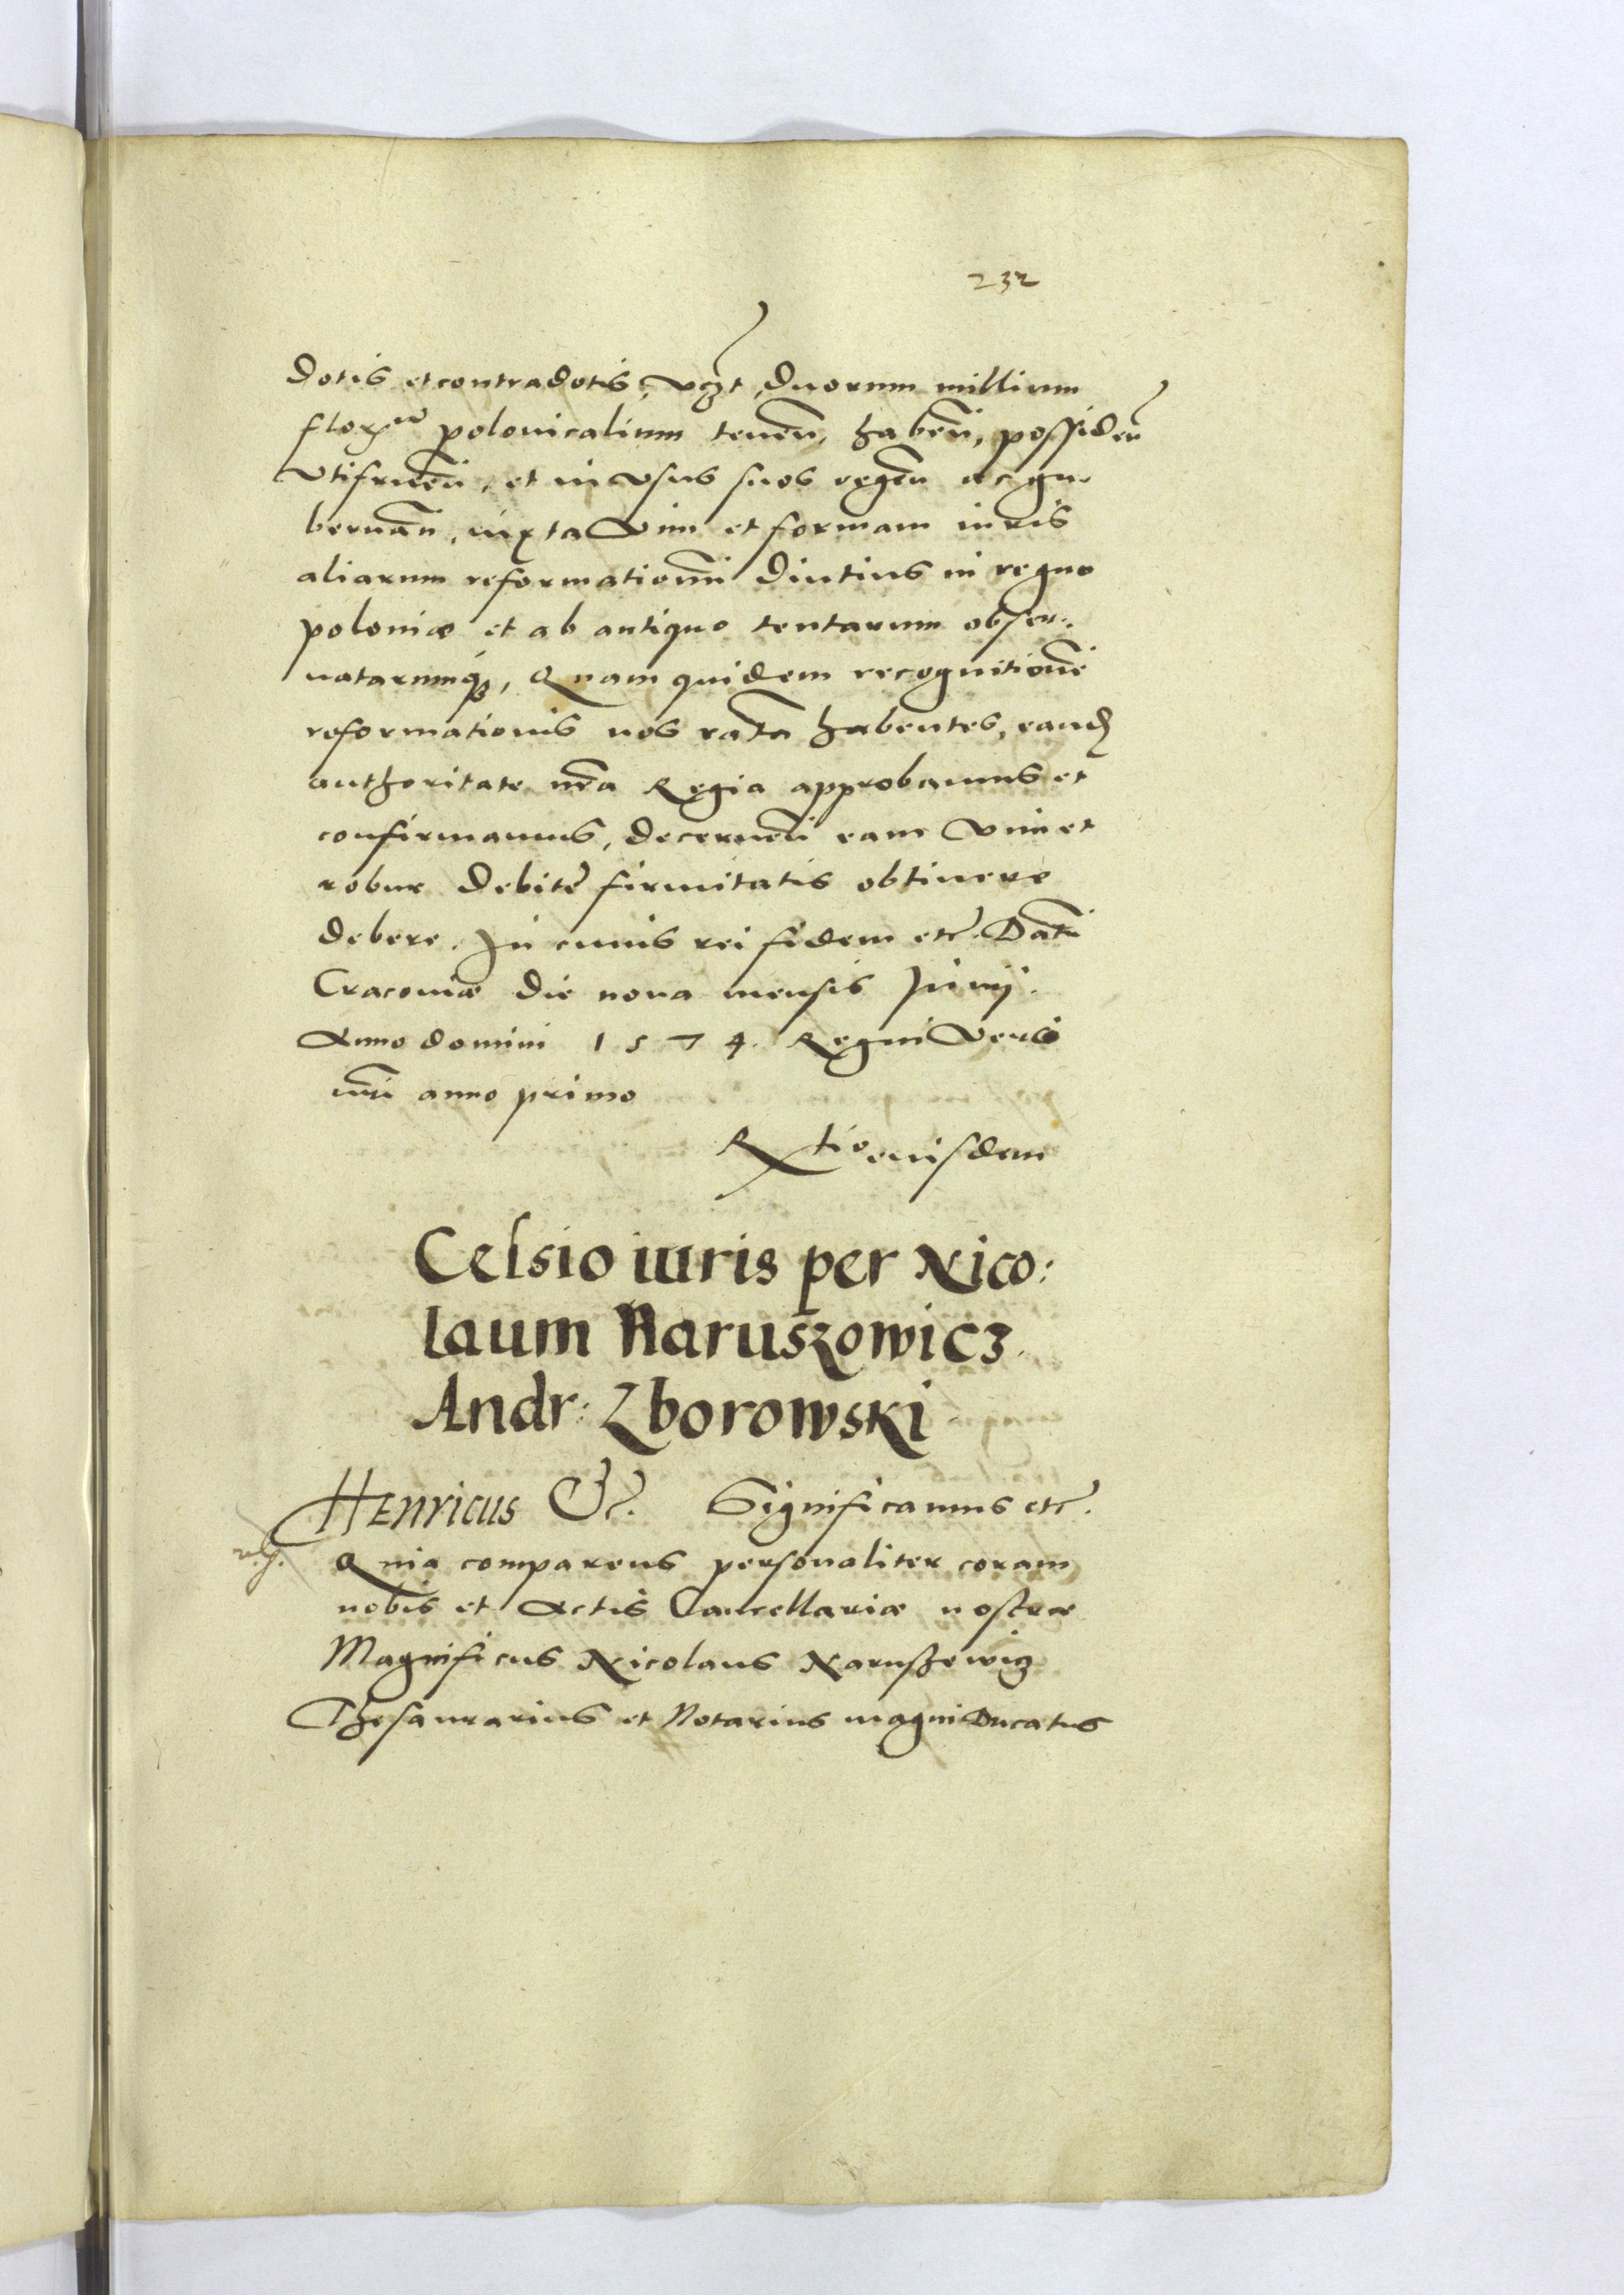 232
dotis et contradotis, vczt, duorum millium
florum polonicalium tenen̄, haben̄, possiden̄
vtifruen̄, et in vsus suos regen̄ ac gu-
bernan̄, iuxta vim et formam iuris
aliarum reformationū diutius in regno
poloniæ et ab antiquo tentarum obser-
uatarumq́ꝫ, Quam quidem recognitionē
reformationis nos ratā habentes, eand
authoritate nr̄a Regia approbamus et
confirmamus, decernen̄ eam vim et
robur debitę firmitatis obtinere
debere. In cuius rei fidem etc. Datū
Cracoviæ die nona mensis Junij.
Anno domini 1574. Regni vero
nr̄i anno primo
Rtio euisdem
Celsio iuris per Nico:
laum Naruszowicz.
Andr: Zborowski.
Henricus &c. Significamus etc.
Quia comparens personaliter coram
nobis et Actis Cancellariæ nostræ
Magnificus Nicolaus Naruszewicz
Thesaurarius et Notarius magni Ducatus